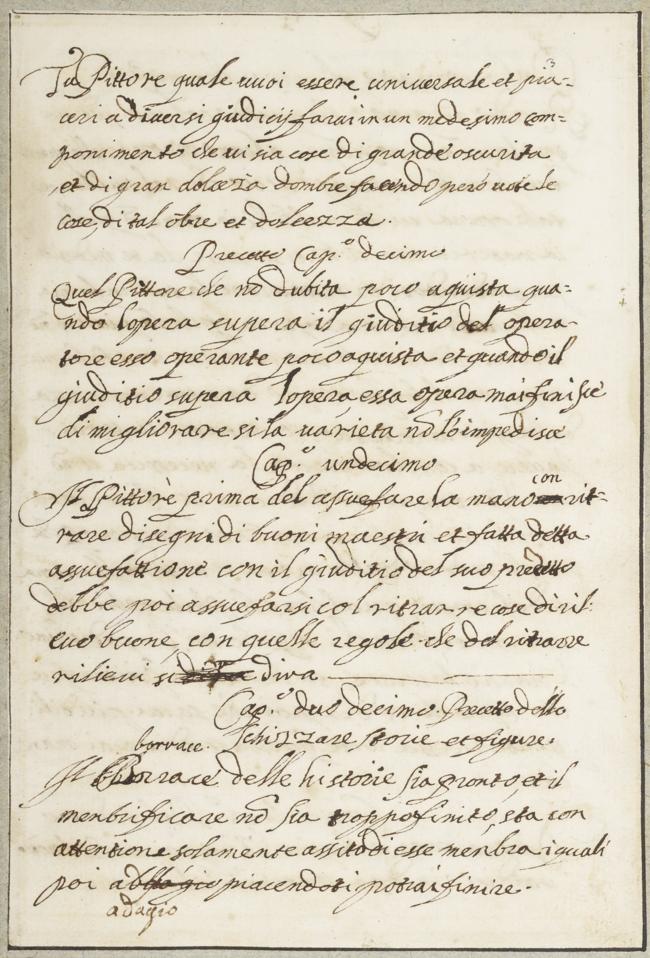 Tu Pittore quale vuoi essere universale et pia-
ceri a diversi giudicij farai in un medesimo com=
ponimento che vi sia cose di grande oscurita
et di gran dolceza dombre facendo però note le
cose di tal õbre et dolcezza.
Precetto Cap.º decimo
Quel Pittore che nõ dubita poco aquista qua=
ndo lopera supera il giuditio del opera-
tore esso operante poco aquista et quando il
giuditio supera lopera essa opera mai finisce
di migliorare si la varieta nõ lo impedisce
Cap.º undecimo
Il Pittore prima del assuefare la mano con rit=
rare disegni di buoni maestri et fatta detta
assuefattione con il giuditio del suo precetto
debbe poi assuefarsi col ritrarre cose di ril:
evo buone con quelle regole che del ritrarre
rilievi si dira
Cap.º duo decimo. Precetto dello
Schizzare storie et figure.
borrace.
Il delle historie sia pronto, et il
menbrificare nõ sia troppo finito, sta con
attentione solamente assiti di esse menbra i quali
poi piacendoti potrai finire.
adagio